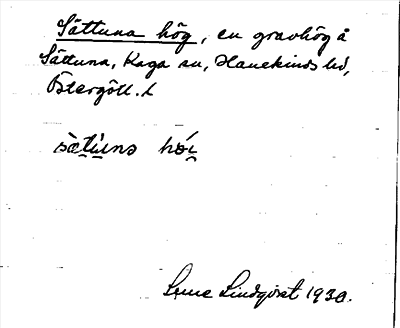 Sättuna hög, en gravhög å
Sättuna, Kaga sn, Hanekinds hd,
Östergötl. l
sætuns hói
Sune Lindqvist 1930.